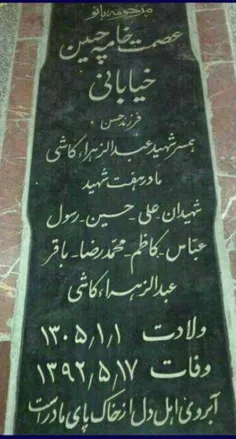 مرحومه بانو
عصمت خامه چین
خیابانی
فرزند حسن
همسر شهید عبدالزهراء کاشی
مادر هفت شهید
شهیدان علی - حسین - رسول
عباس - کاظم - محمدرضا - باقر
عبدالزهراء کاشی
ولادت ۱۳۰۵٫۱٫۱
وفات ۱۳۹۲٫۵٫۱۷
آبروی اهل دل از خاک پای مادر است